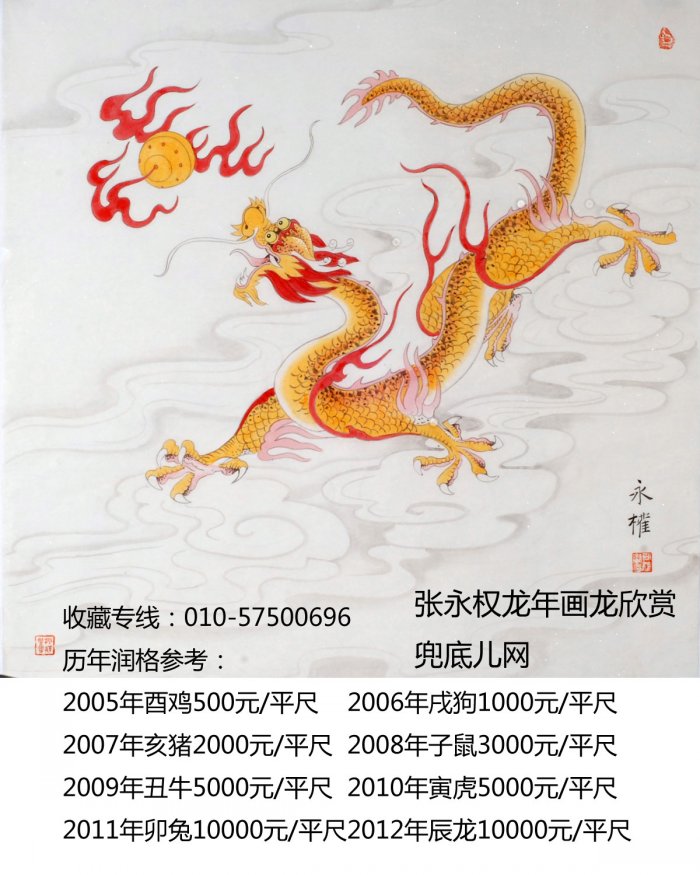 永
権
收藏专线：010-57500696
张永权龙年画龙欣赏
历年润格参考：
兜底儿网
2005年酉鸡500元/平尺 2006年戌狗1000元/平尺
2007年亥猪2000元/平尺 2008年子鼠3000元/平尺
2009年丑牛5000元/平尺 2010年寅虎5000元/平尺
2011年卯兔10000元/平尺2012年辰龙10000元/平尺